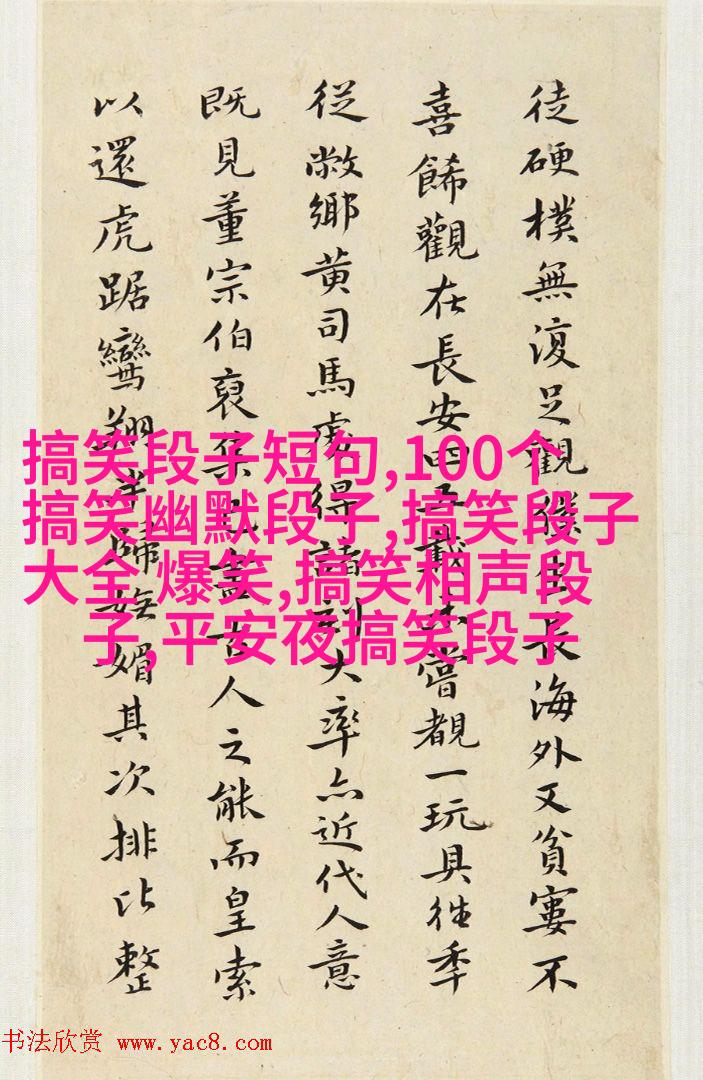 徒硬樸無復足觀僕生長海外又貧窶不
喜餙觀在長安四五載未嘗覩一玩具往季
從敝鄉黄司馬處得諸刻大率亦近代人意
既見董宗伯裒集蓋古人之能而皇索
以還虎踞鸞翔歸妩媚其次排比整
搞笑段子短句,100个
搞笑幽默段子,搞笑段子
大全,爆笑,搞笑相声段
子,平安夜搞笑段子
书法欣赏 www.yac8.com